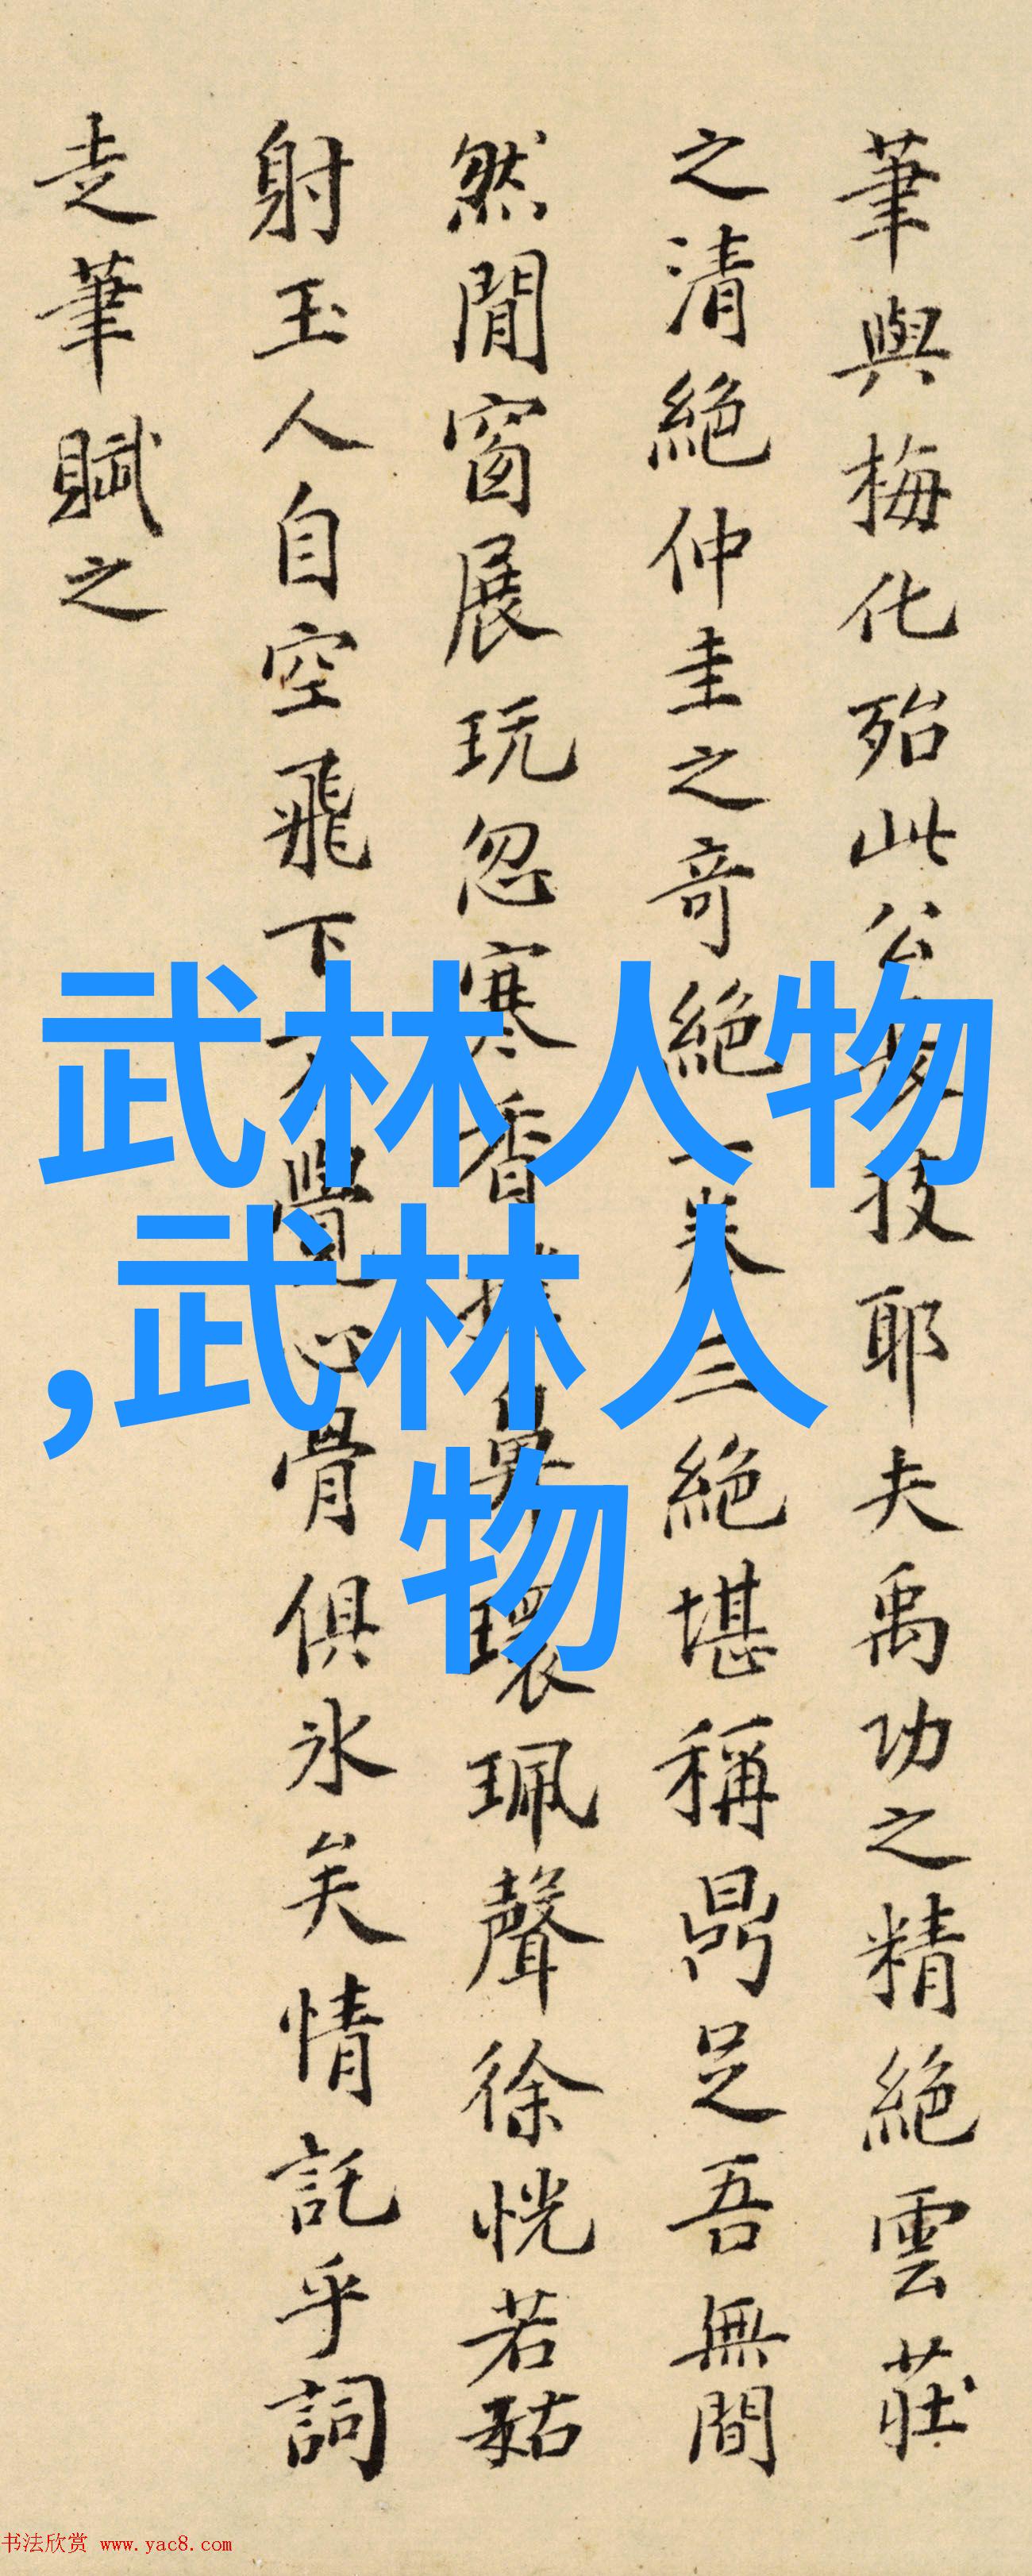 筆與梅化殆此公技耶夫禹功之精絕雲莊
之清絕仲圭之奇絕一卷三絕堪稱鼎足吾無間
然閒窗展玩忽寒香鼻環珮聲徐恍若菇
射玉人自空飛下覺心骨俱冰矣情託乎詞
走筆賦之
武林人物
,武林人
物
书法欣赏 www.yac8.com